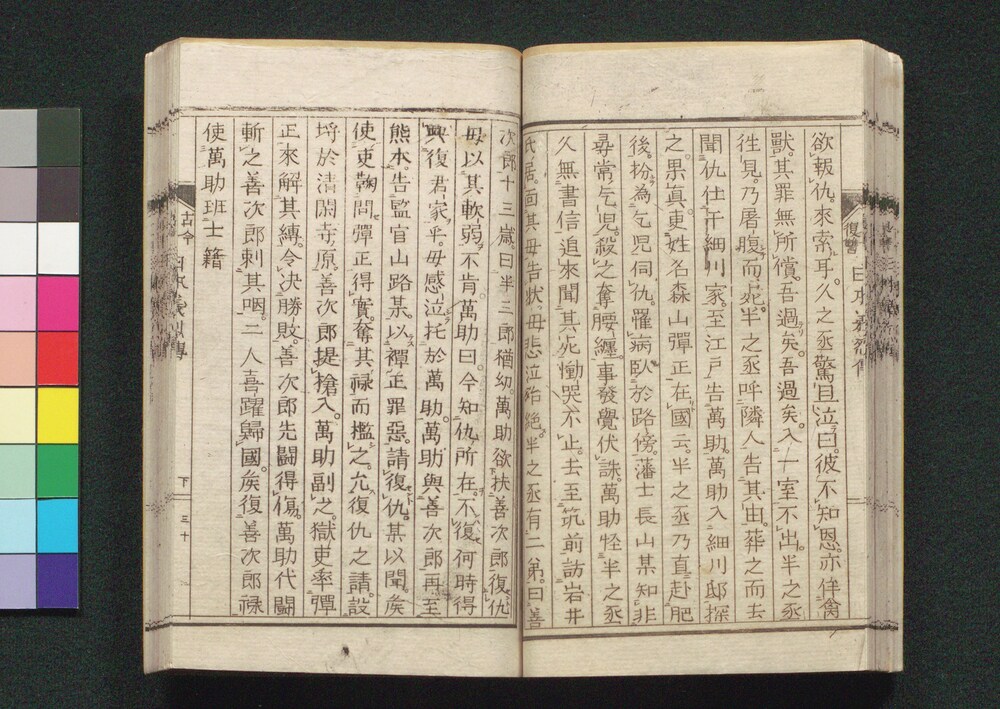 欲報仇。來索耳。久之丞驚且泣曰。彼不知恩。亦侔禽
獸。其罪無所償。吾過矣。吾過矣。入一室不出。半之丞
徃見。乃屠腹而死。半之丞呼隣人告其由。葬之而去
聞仇仕于細川家。至江戸告萬助。萬助入細川邸探
之。果眞。更姓名森山彈正在國云。半之丞乃直赴肥
後。扮為乞児伺仇。罹病臥於路傍。藩士長山某知非
尋常乞児。殺之奪腰纏。事發覺伏誅。萬助怪半之丞
久無書信。追來聞其死慟哭不止。去至筑前訪岩井
氏居。面其母告状。母悲泣殆絶。半之丞有二弟。曰善
次郎十三歳。曰半三郎猶幼。萬助欲扶善次郎復仇
母以其軟弱。不肯。萬助曰。今知仇所在。不復何時得
興復君家乎。母感泣。托於萬助。萬助與善次郎再至
熊本。告監官山路某。以禪正罪惡。請復仇。某以聞。矦
使吏鞠問彈正得實。奪其禄而檻之。允復仇之請。設
埓於清閑寺原。善次郎提槍入。萬助副之。獄吏牽彈
正來解其縛。令決勝敗。善次郎先闘得傷。萬助代闘
斬之善次郎刺其咽。二人喜躍歸國。矦復善次郎禄
使萬助班士籍
古今
下
三十
復讐